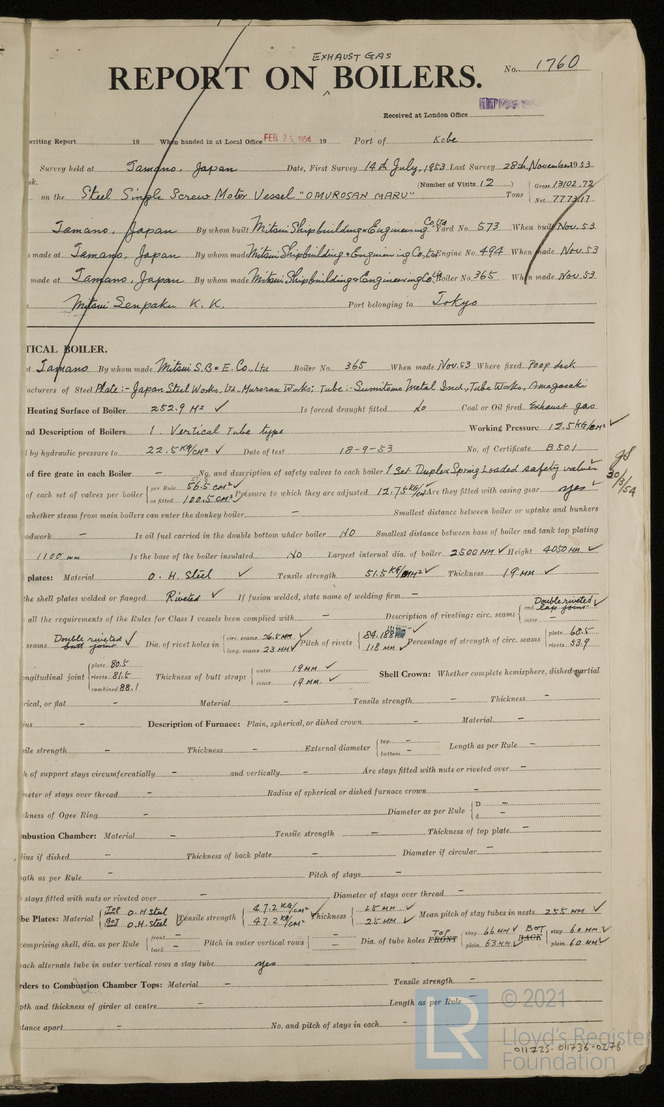 EXHAUST GAS
REPORT ON BOILERS.
No. 1760
Received at London Office
writing Report 19 When handed in at Local Office FEB 25 1954 19 Port of Kobe
Survey held at Tamano, Japan Date, First Survey 14th July, 1953 Last Survey 28th November 1953
on the Steel Single Screw Motor Vessel "OMUROSAN MARU" (Number of Visits 12) Tons Gross 13102.72 Net 7773.17
Tamano, Japan By whom built Mitsui Shipbuilding & Engineering Co Ltd Yard No. 573 When built Nov. 53
made at Tamano, Japan By whom made Mitsui Shipbuilding & Engineering Co Ltd Engine No. 494 When made Nov. 53
made at Tamano, Japan By whom made Mitsui Shipbuilding & Engineering Co Ltd Boiler No. 365 When made Nov. 53
Mitsui Senpaku K. K. Port belonging to Tokyo
TICAL BOILER.
Tamano By whom made Mitsui S.B. & E. Co. Ltd Boiler No. 365 When made Nov. 53 Where fixed Poop deck
acturers of Steel Plate:- Japan Steel Works, Ltd. Muroran Works; Tube:- Sumitomo Metal Ind., Tube Works, Amagasaki
Heating Surface of Boiler 252.9 M² ✓ Is forced draught fitted No Coal or Oil fired Exhaust gas
and Description of Boilers 1. Vertical Tube type Working Pressure 12.5 KG/CM² ✓
by hydraulic pressure to 22.5 KG/CM² ✓ Date of test 18-9-53 No. of Certificate B501
of fire grate in each Boiler – No. and description of safety valves to each boiler 1 Set Duplex Spring Loaded safety valves
of each set of valves per boiler per Rule 56.5 CM² ✓ as fitted 100.5 CM² ✓ Pressure to which they are adjusted 12.75 KG/CM² Are they fitted with easing gear yes ✓
20/3/54
whether steam from main boilers can enter the donkey boiler – Smallest distance between boiler or uptake and bunkers
odwork – Is oil fuel carried in the double bottom under boiler No Smallest distance between base of boiler and tank top plating
1100 mm Is the base of the boiler insulated No Largest internal dia. of boiler 2500 MM ✓ Height 4050 MM ✓
plates: Material O. H. Steel ✓ Tensile strength 51.5 KG/MM² ✓ Thickness 19 MM ✓
the shell plates welded or flanged Riveted ✓ If fusion welded, state name of welding firm –
all the requirements of the Rules for Class I vessels been complied with – Description of riveting: circ. seams end Double riveted lap joint ✓ inter –
seams Double riveted butt joint ✓ Dia. of rivet holes in circ. seams 26.5 MM ✓ long. seams 23 MM ✓ Pitch of rivets 84.188 ✓ 118 MM ✓ Percentage of strength of circ. seams plate 68.5 rivets 53.9
ongitudinal joint plate 80.5 rivets 81.5 combined 88.1 Thickness of butt straps outer 19 MM ✓ inner 19 MM ✓ Shell Crown: Whether complete hemisphere, dished partial
rical, or flat – Material – Tensile strength – Thickness –
ius – Description of Furnace: Plain, spherical, or dished crown – Material –
ile strength – Thickness – External diameter top – bottom – Length as per Rule –
h of support stays circumferentially – and vertically – Are stays fitted with nuts or riveted over –
meter of stays over thread – Radius of spherical or dished furnace crown –
kness of Ogee Ring – Diameter as per Rule D – d –
mbustion Chamber: Material – Tensile strength – Thickness of top plate –
dius if dished – Thickness of back plate – Diameter if circular –
gth as per Rule – Pitch of stays –
stays fitted with nuts or riveted over – Diameter of stays over thread –
be Plates: Material Top O. H Steel Bot O. H Steel Tensile strength 47.2 KG/MM² ✓ 47.2 KG/MM² ✓ Thickness 25 MM ✓ 25 MM ✓ Mean pitch of stay tubes in nests 255 MM ✓
comprising shell, dia. as per Rule front – back – Pitch in outer vertical rows – Dia. of tube holes TOP FRONT stay 66 MM ✓ plain 63 MM ✓ BOT BACK stay 60 MM ✓ plain 60 MM ✓
each alternate tube in outer vertical rows a stay tube yes
rders to Combustion Chamber Tops: Material – Tensile strength –
pth and thickness of girder at centre – Length as per Rule –
tance apart – No. and pitch of stays in each –
LR © 2021
Lloyd's Register
Foundation
011725-011736-0276